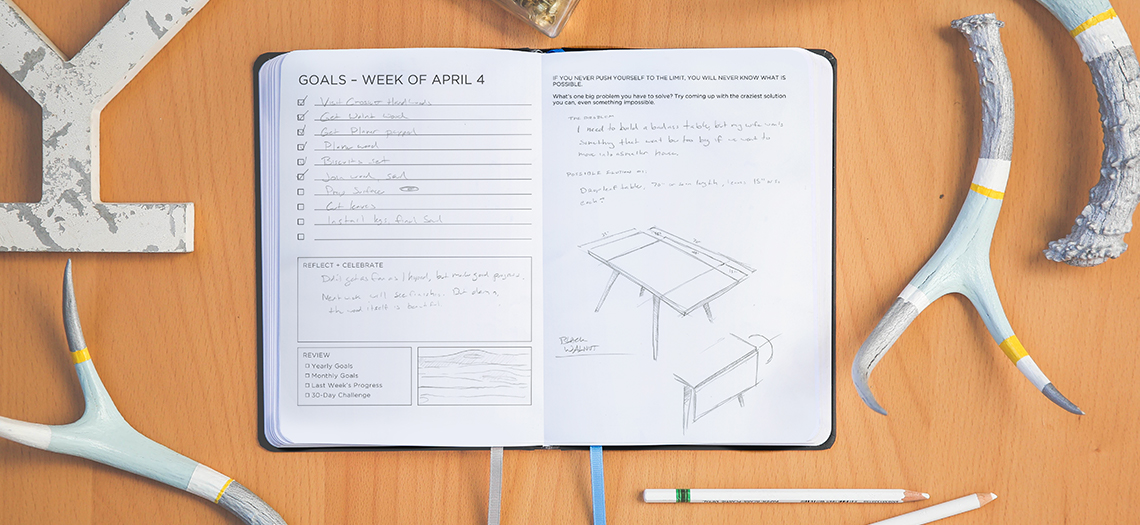 GOALS – WEEK OF APRIL 4
Visit Crosscut Hardwoods
Get Walnut Wood
Get Planer paypal
Plane wood
Biscuits set
Join wood, sand
Prep Surface
Cut leaves
Install legs, final sand
REFLECT + CELEBRATE
Didn't get as far as I hoped, but made good progress.
Next week will see finishing. Out
the wood itself is beautiful
REVIEW
Yearly Goals
Monthly Goals
Last Week's Progress
30-Day Challenge
IF YOU NEVER PUSH YOURSELF TO THE LIMIT, YOU WILL NEVER KNOW WHAT IS
POSSIBLE.
What's one big problem you have to solve? Try coming up with the craziest solution
you can, even something impossible.
THE PROBLEM
I need to build a badass table, but my wife wants
something that wont be too big if we want to
move into another house
POSSIBLE SOLUTION
Drop leaf table, 72" in length, leaves 15"
each
BLACK
WALNUT